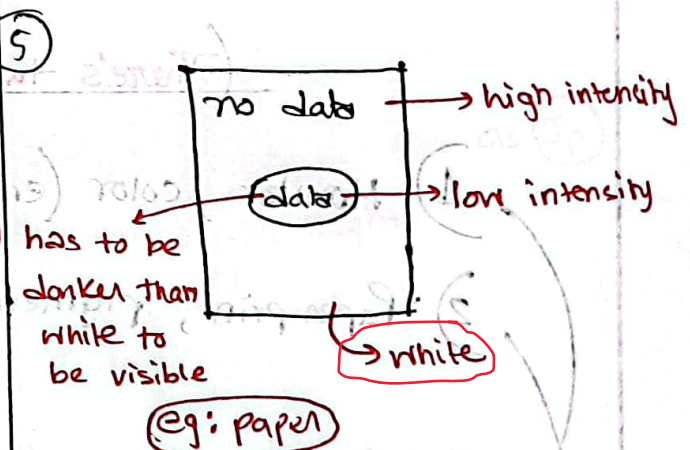 5
no data → high intensity
data → low intensity
has to be
darker than
white to
be visible
→ white
eg: paper